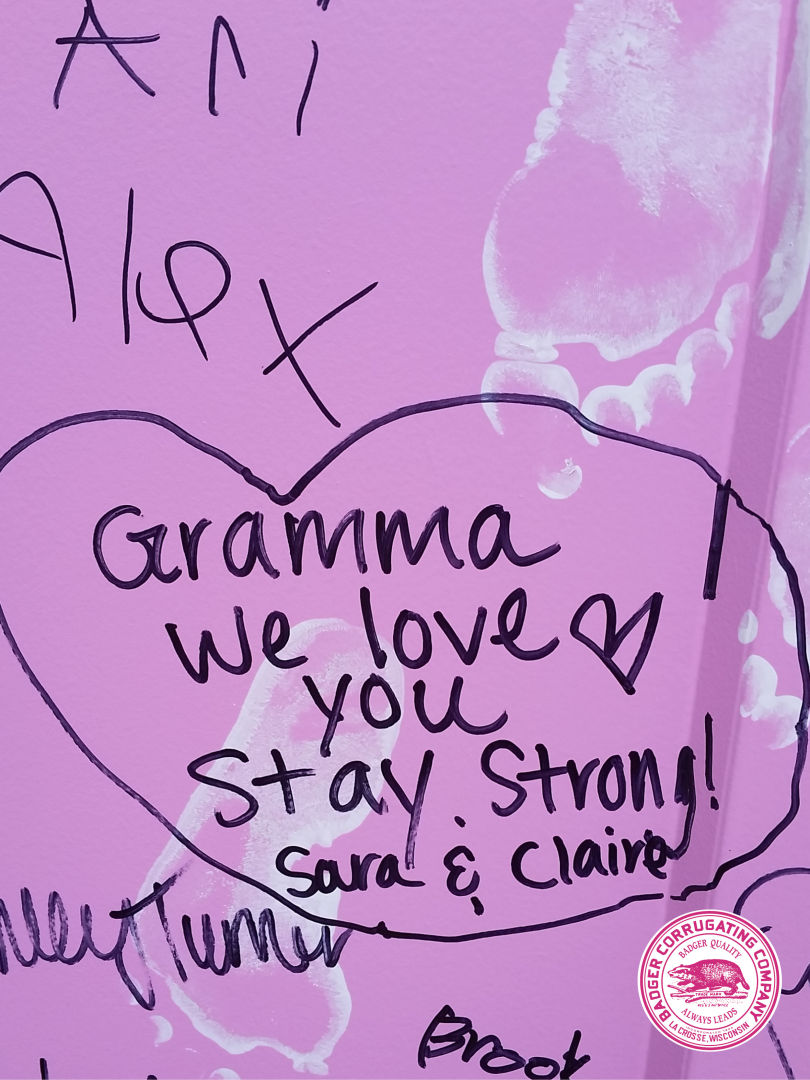 Ari
Alex
Gramma
we love
you
Stay Strong!
Sara & Claire
Turner
BADGER CORRUGATING COMPANY
BADGER QUALITY
TRADE MARK
ALWAYS LEADS
LA CROSSE, WISCONSIN